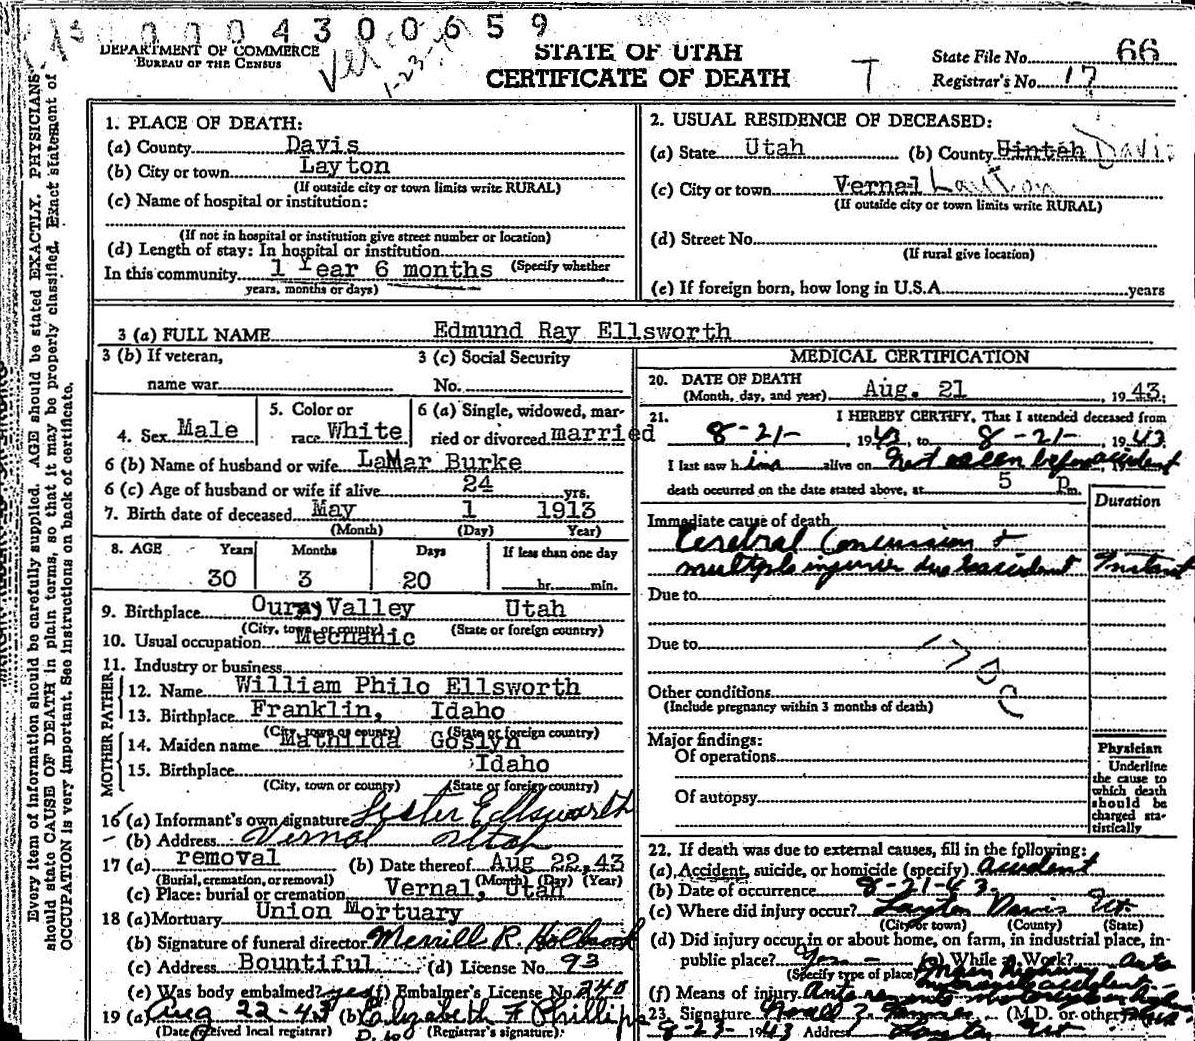 0000430 0659
DEPARTMENT OF COMMERCE
BUREAU OF THE CENSUS
Ver
1-23-
STATE OF UTAH
CERTIFICATE OF DEATH
T
State File No. 66
Registrar's No. 17
Every item of information should be carefully supplied. AGE should be stated EXACTLY. PHYSICIANS
should state CAUSE OF DEATH in plain terms, so that it may be properly classified. Exact statement of
OCCUPATION is very important. See instructions on back of certificate.
1. PLACE OF DEATH:
(a) County Davis
(b) City or town Layton
(If outside city or town limits write RURAL)
(c) Name of hospital or institution:
(If not in hospital or institution give street number or location)
(d) Length of stay: In hospital or institution
In this community 1 Year 6 months (Specify whether
years, months or days)
2. USUAL RESIDENCE OF DECEASED:
(a) State Utah (b) County Uintah Davis
(c) City or town Vernal Layton
(If outside city or town limits write RURAL)
(d) Street No.
(If rural give location)
(e) If foreign born, how long in U.S.A. years
3 (a) FULL NAME Edmund Ray Ellsworth
3 (b) If veteran,
name war
3 (c) Social Security
No.
4. Sex Male
5. Color or
race White
6 (a) Single, widowed, mar-
ried or divorced married
6 (b) Name of husband or wife LaMar Burke
6 (c) Age of husband or wife if alive 24 yrs.
7. Birth date of deceased May 1 1913
(Month) (Day) Year)
8. AGE Years Months Days If less than one day
30 3 20 hr. min.
9. Birthplace Ouray Valley Utah
(City, town, or county) (State or foreign country)
10. Usual occupation Mechanic
11. Industry or business
FATHER
12. Name William Philo Ellsworth
13. Birthplace Franklin, Idaho
(City, town or county) (State or foreign country)
MOTHER
14. Maiden name Mathilda Goslyn
15. Birthplace Idaho
(City, town or county) (State or foreign country)
16 (a) Informant's own signature Lester Ellsworth
(b) Address Vernal Utah
17 (a) removal (b) Date thereof Aug 22,43
(Burial, cremation, or removal) (Month) (Day) (Year)
(c) Place: burial or cremation Vernal, Utah
18 (a) Mortuary Union Mortuary
(b) Signature of funeral director Merrill R. Holbrook
(c) Address Bountiful (d) License No. 93
(e) Was body embalmed? yes (f) Embalmer's License No. 240
19 (a) Aug 22-43 (b) Elizabeth F Phillips
(Date received local registrar) (Registrar's signature)
MEDICAL CERTIFICATION
20. DATE OF DEATH
(Month, day, and year) Aug. 21, 1943
21. I HEREBY CERTIFY, That I attended deceased from
8-21-, 1943, to 8-21-, 1943
I last saw him alive on Not as seen before accident
death occurred on the date stated above, at 5 P.m.
Duration
Immediate cause of death
Cerebral Concussion +
multiple injuries due to accident Instant
Due to
Due to
170c
Other conditions
(Include pregnancy within 3 months of death)
Major findings:
Of operations
Of autopsy
Physician
Underline
the cause to
which death
should be
charged sta-
tistically
22. If death was due to external causes, fill in the following:
(a) Accident, suicide, or homicide (specify) Accident
(b) Date of occurrence 8-21-43
(c) Where did injury occur? Layton Davis Ut.
(City or town) (County) (State)
(d) Did injury occur in or about home, on farm, in industrial place, in-
public place? Yes - (e) While at Work? Auto
(Specify type of place) Main highway
(f) Means of injury Auto
23. Signature (M.D. or other)
8-23-1943 Address Layton Ut